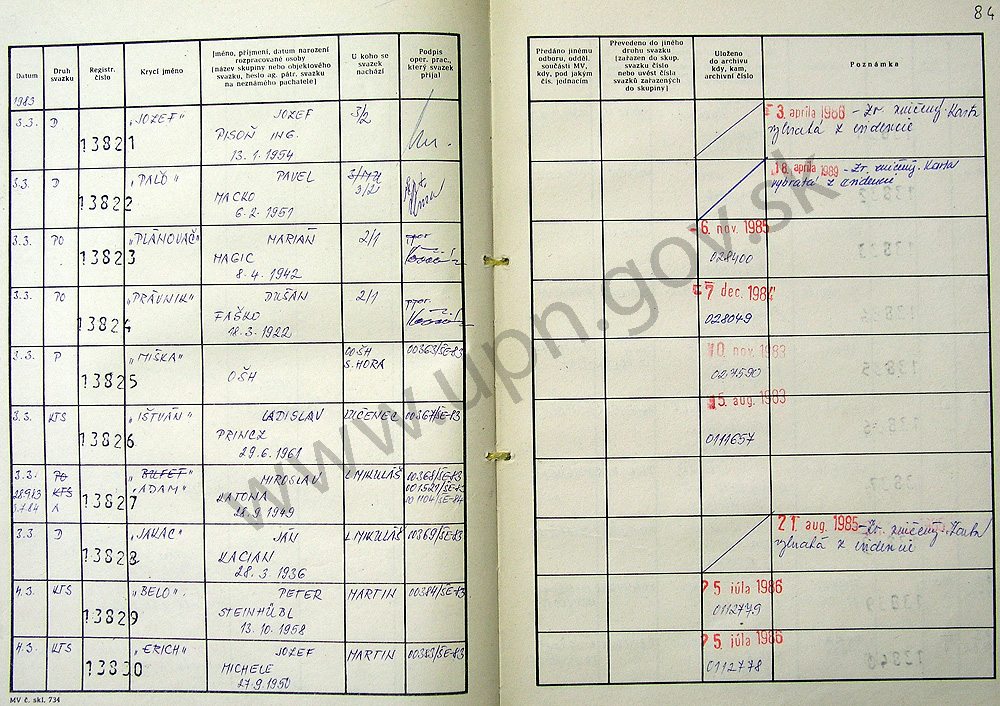 84
Datum
Druh svazku
Registr. číslo
Krycí jméno
Jméno, příjmení, datum narození rozpracované osoby (název skupiny nebo objektového svazku, heslo ag. pátr. svazku na neznámého pachatele)
U koho se svazek nachází
Podpis oper. prac., který svazek přijal
Předáno jinému odboru, odděl. součásti MV, kdy, pod jakým čís. jednacím
Převedeno do jiného druhu svazku (zařazen do skup. svazku číslo nebo uvést čísla svazků zařazených do skupiny)
Uloženo do archivu kdy, kam, archivní číslo
Poznámka
1983
3.3. D 13821 „JOZEF" JOZEF 3/2
PISOŇ ING.
13.1.1954
3. apríla 1986 - Zv. zničený Karta
vybratá z evidencie
3.3. D 13822 „PALO" PAVEL
MACKO 3/2
6.2.1951
18. apríla 1989 - Zv. zničený. Karta
vybratá z evidencie
3.3. PO 13823 „PLÁNOVAČ" MARIÁN 2/1
MAGIC
8.4.1942
6. nov. 1985
028400
3.3. PO 13824 „PRÁVNIK" DUŠAN 2/1 ppor.
FAŠKO
18.3.1922
7 dec. 1984
028049
3.3. P 13825 „MIŠKA" OŠH
OOŠH
S. HORA
00363/ŠE-83
10. nov. 1983
027590
3.3. KTS 13826 „IŠTVÁN" LADISLAV LUČENEC 00367/ŠE-83
PRINCZ
29.6.1961
5. aug. 1983
0111657
3.3. PO 13827 „BUFET" MIROSLAV L. MIKULÁŠ 00368/ŠE-83
28.9.83 KTS „ADAM" KATONA
A 28.9.1949
3.3. D 13828 JÁN L. MIKULÁŠ 00369/ŠE-83
KACIAN
28.3.1936
21. aug. 1985 - Zv. zničený. Karta
vybratá z evidencie
4.3. KTS 13829 „BELO" PETER MARTIN 00384/ŠE-83
STEINHÜBL
13.10.1958
25 júla 1986
0112779
4.3. KTS 13830 „ERICH" JOZEF MARTIN 00383/ŠE-83
MICHELE
27.9.1950
25. júla 1986
0112778
MV č. skl. 734
www.upn.gov.sk